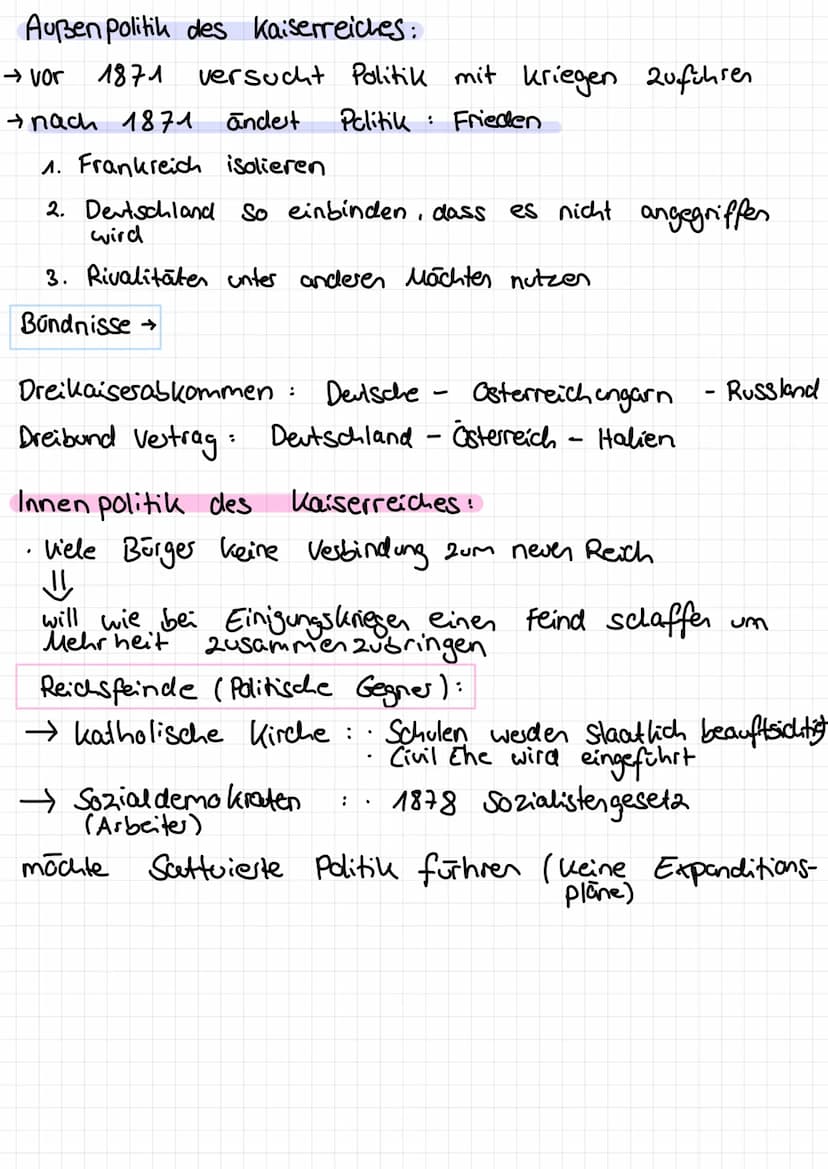 Außenpolitik des Kaiserreiches:
→ vor 1871 versucht Politik mit kriegen zuführen
→ nach 1871 ändert Politik : Frieden
1. Frankreich isolieren
2. Deutschland so einbinden, dass es nicht angegriffen
wird
3. Rivalitäten unter anderen Mächten nutzen
Bündnisse →
Dreikaiserabkommen : Deutsche - Österreichungarn - Russland
Dreibund Vertrag : Deutschland - Österreich - Italien
Innenpolitik des Kaiserreiches:
· Viele Bürger keine Verbindung zum neuen Reich
⇓
will wie bei Einigungskriegen einen Feind schaffen um
Mehrheit zusammenzubringen
Reichsfeinde (Politische Gegner):
→ katholische Kirche : · Schulen werden staatlich beauftsichtigt
· Civil Ehe wird eingeführt
→ Sozialdemokraten : · 1878 Sozialistengesetz
(Arbeiter)
möchte Politik führen (keine Expanditions-
pläne)